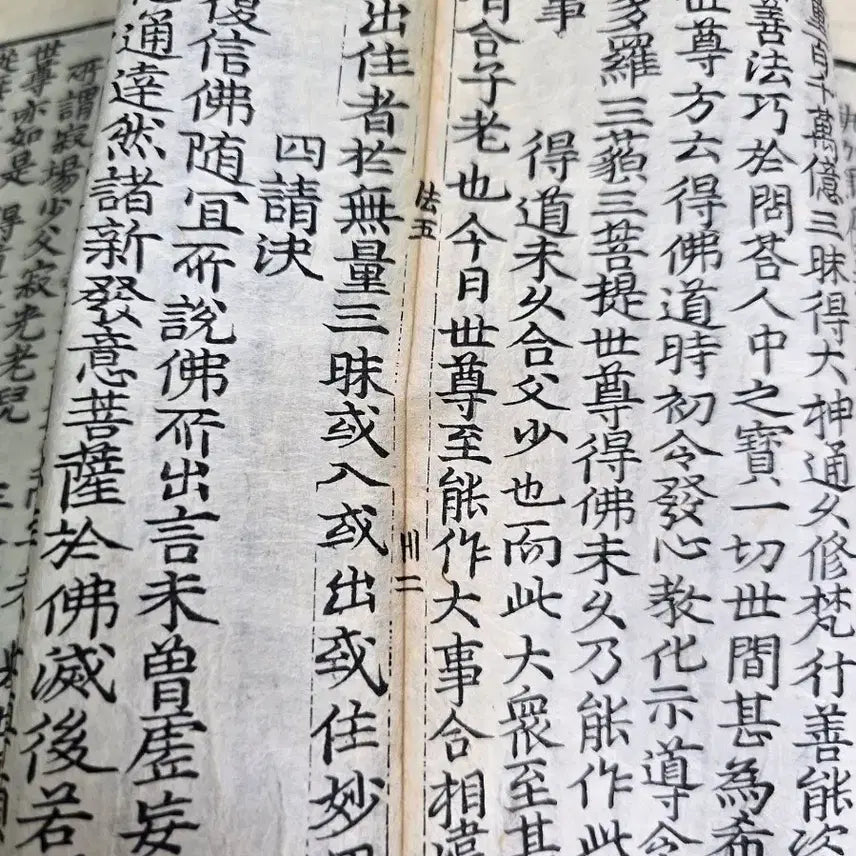 量百千萬億三昧得大神通久修梵行善能次
善法巧於問荅人中之寶一切世間甚為希
世尊方云得佛道時初令發心敎化示導令
多羅三藐三菩提世尊得佛未久乃能作此
事
得道未久合父少也而此大衆至其
合子老也今日世尊至能作大事合相違
法五
卅二
出住者於無量三昧或入或出或住妙
四請決
復信佛随宜所說佛所出言未曽虛妄
通達然諸新發意菩薩於佛滅後若
所謂寂場少父寂光老兒
世尊亦如是